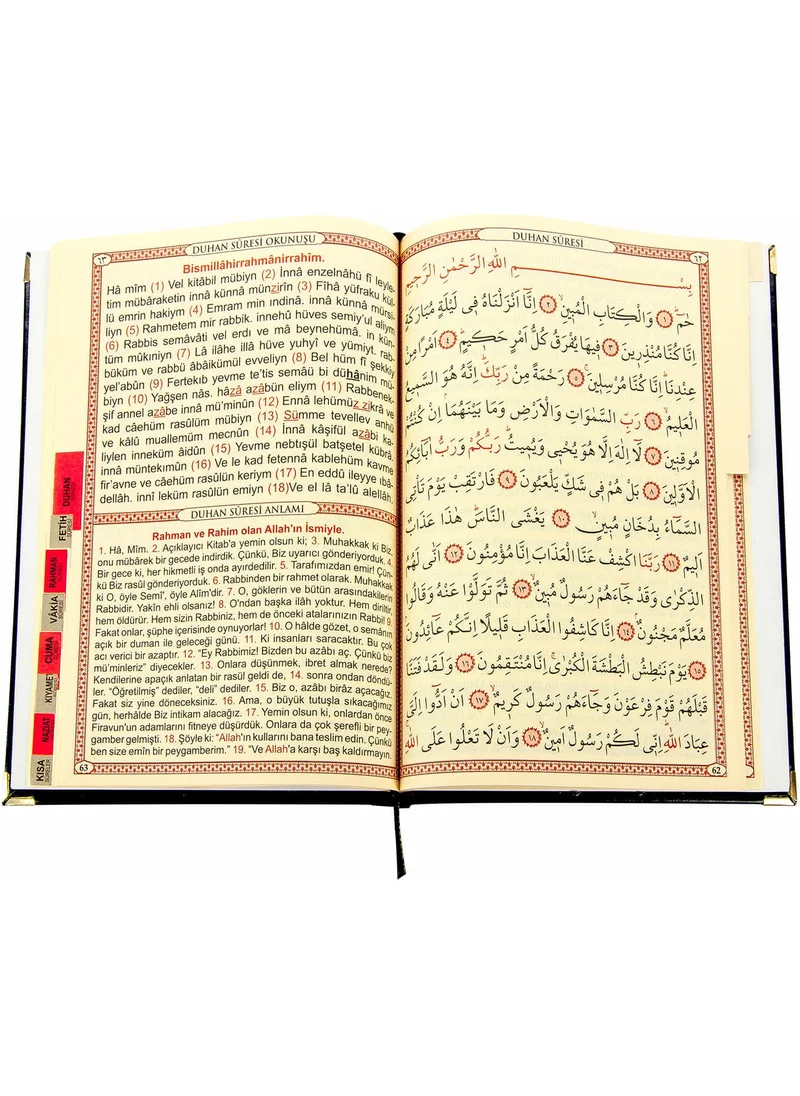 DUHAN SÛRESİ
٦٢
بِسْمِ اللهِ الرَّحْمٰنِ الرَّحِيمِ
حٰمٓ ﴿١﴾ وَالْكِتَابِ الْمُبِينِ ﴿٢﴾ اِنَّٓا اَنْزَلْنَاهُ فِى لَيْلَةٍ مُبَارَكَةٍ
اِنَّا كُنَّا مُنْذِرِينَ ﴿٣﴾ فِيهَا يُفْرَقُ كُلُّ اَمْرٍ حَكِيمٍ ﴿٤﴾ اَمْرًا مِنْ
عِنْدِنَا اِنَّا كُنَّا مُرْسِلِينَ ﴿٥﴾ رَحْمَةً مِنْ رَبِّكَ اِنَّهُ هُوَ السَّمِيعُ
الْعَلِيمُ ﴿٦﴾ رَبِّ السَّمٰوَاتِ وَالْاَرْضِ وَمَا بَيْنَهُمَا اِنْ كُنْتُمْ
مُوقِنِينَ ﴿٧﴾ لَٓا اِلٰهَ اِلَّا هُوَ يُحْيِى وَيُمِيتُ رَبُّكُمْ وَرَبُّ اٰبَٓائِكُمُ
الْاَوَّلِينَ ﴿٨﴾ بَلْ هُمْ فِى شَكٍّ يَلْعَبُونَ ﴿٩﴾ فَارْتَقِبْ يَوْمَ تَأْتِى
السَّمَٓاءُ بِدُخَانٍ مُبِينٍ ﴿١٠﴾ يَغْشَى النَّاسَ هٰذَا عَذَابٌ
اَلِيمٌ ﴿١١﴾ رَبَّنَا اكْشِفْ عَنَّا الْعَذَابَ اِنَّا مُؤْمِنُونَ ﴿١٢﴾ اَنّٰى لَهُمُ
الذِّكْرٰى وَقَدْ جَٓاءَهُمْ رَسُولٌ مُبِينٌ ﴿١٣﴾ ثُمَّ تَوَلَّوْا عَنْهُ وَقَالُوا
مُعَلَّمٌ مَجْنُونٌ ﴿١٤﴾ اِنَّا كَاشِفُوا الْعَذَابِ قَلِيلًا اِنَّكُمْ عَٓائِدُونَ
﴿١٥﴾ يَوْمَ نَبْطِشُ الْبَطْشَةَ الْكُبْرٰى اِنَّا مُنْتَقِمُونَ ﴿١٦﴾ وَلَقَدْ فَتَنَّا
قَبْلَهُمْ قَوْمَ فِرْعَوْنَ وَجَٓاءَهُمْ رَسُولٌ كَرِيمٌ ﴿١٧﴾ اَنْ اَدُّٓوا اِلَيَّ
عِبَادَ اللهِ اِنِّى لَكُمْ رَسُولٌ اَمِينٌ ﴿١٨﴾ وَاَنْ لَا تَعْلُوا عَلَى اللهِ
62
DUHAN SÛRESİ OKUNUŞU
٦٣
Bismillâhirrahmânirrahîm.
Hâ mîm (1) Vel kitâbil mübiyn (2) İnnâ enzelnâhü fî leyle-
tim mübâraketin innâ künnâ münzirîn (3) Fîhâ yüfraku kül-
lü emrin hakiym (4) Emram min ındinâ. innâ künnâ mürsi-
liyn (5) Rahmetem mir rabbik. innehû hüves semiy'ul aliym
(6) Rabbis semâvâti vel erdı ve mâ beynehümâ. in kün-
tüm mûkıniyn (7) Lâ ilâhe illâ hüve yuhyî ve yümiyt. rab-
büküm ve rabbü âbâikümül evveliyn (8) Bel hüm fî şekkiy
yel'abûn (9) Fertekıb yevme te'tis semâü bi dühânim mü-
biyn (10) Yağşen nâs. hâzâ azâbün eliym (11) Rabbenek-
şif annel azâbe innâ mü'minûn (12) Ennâ lehümüz zikrâ ve
kad câehüm rasûlüm mübiyn (13) Sümme tevellev anhü
ve kâlû muallemüm mecnûn (14) İnnâ kâşifül azâbi ka-
liylen inneküm âidûn (15) Yevme nebtışül batşetel kübrâ.
innâ müntekımûn (16) Ve le kad fetennâ kablehüm kavme
fir'avne ve câehüm rasûlün keriym (17) En eddû ileyye ibâ-
dellâh. innî leküm rasûlün emiyn (18)Ve el lâ ta'lû alellâh.
DUHAN SÛRESİ ANLAMI
Rahman ve Rahim olan Allah'ın İsmiyle.
1. Hâ, Mîm. 2. Açıklayıcı Kitab'a yemin olsun ki; 3. Muhakkak ki Biz,
onu mübârek bir gecede indirdik. Çünkü, Biz uyarıcı gönderiyorduk. 4.
Bir gece ki, her hikmetli iş onda ayırdedilir. 5. Tarafımızdan emir! Çün-
kü Biz rasûl gönderiyorduk. 6. Rabbinden bir rahmet olarak. Muhakkak
ki O, öyle Semî', öyle Alîm'dir. 7. O, göklerin ve bütün arasındakilerin
Rabbidir. Yakîn ehli olsanız! 8. O'ndan başka ilâh yoktur. Hem diriltir,
hem öldürür. Hem sizin Rabbiniz, hem de önceki atalarınızın Rabbi! 9.
Fakat onlar, şüphe içerisinde oynuyorlar! 10. O hâlde gözet, o semânın
açık bir duman ile geleceği günü. 11. Ki insanları saracaktır. Bu çok
acı verici bir azaptır. 12. "Ey Rabbimiz! Bizden bu azâbı aç. Çünkü biz
mü'minleriz" diyecekler. 13. Onlara düşünmek, ibret almak nerede?
Kendilerine apaçık anlatan bir rasûl geldi de, 14. sonra ondan döndü-
ler. "Öğretilmiş" dediler, "deli" dediler. 15. Biz o, azâbı birâz açacağız.
Fakat siz yine döneceksiniz. 16. Ama, o büyük tutuşla sıkacağımız
gün, herhâlde Biz intikam alacağız. 17. Yemin olsun ki, onlardan önce
Firavun'un adamlarını fitneye düşürdük. Onlara da çok şerefli bir pey-
gamber gelmişti. 18. Şöyle ki: "Allah'ın kullarını bana teslim edin. Çünkü
ben size emîn bir peygamberim." 19. "Ve Allah'a karşı baş kaldırmayın.
63
DUHAN
FETİH
RAHMAN
VÂKIA
CUMA
KIYAMET
NAZİAT
KISA
SURELER